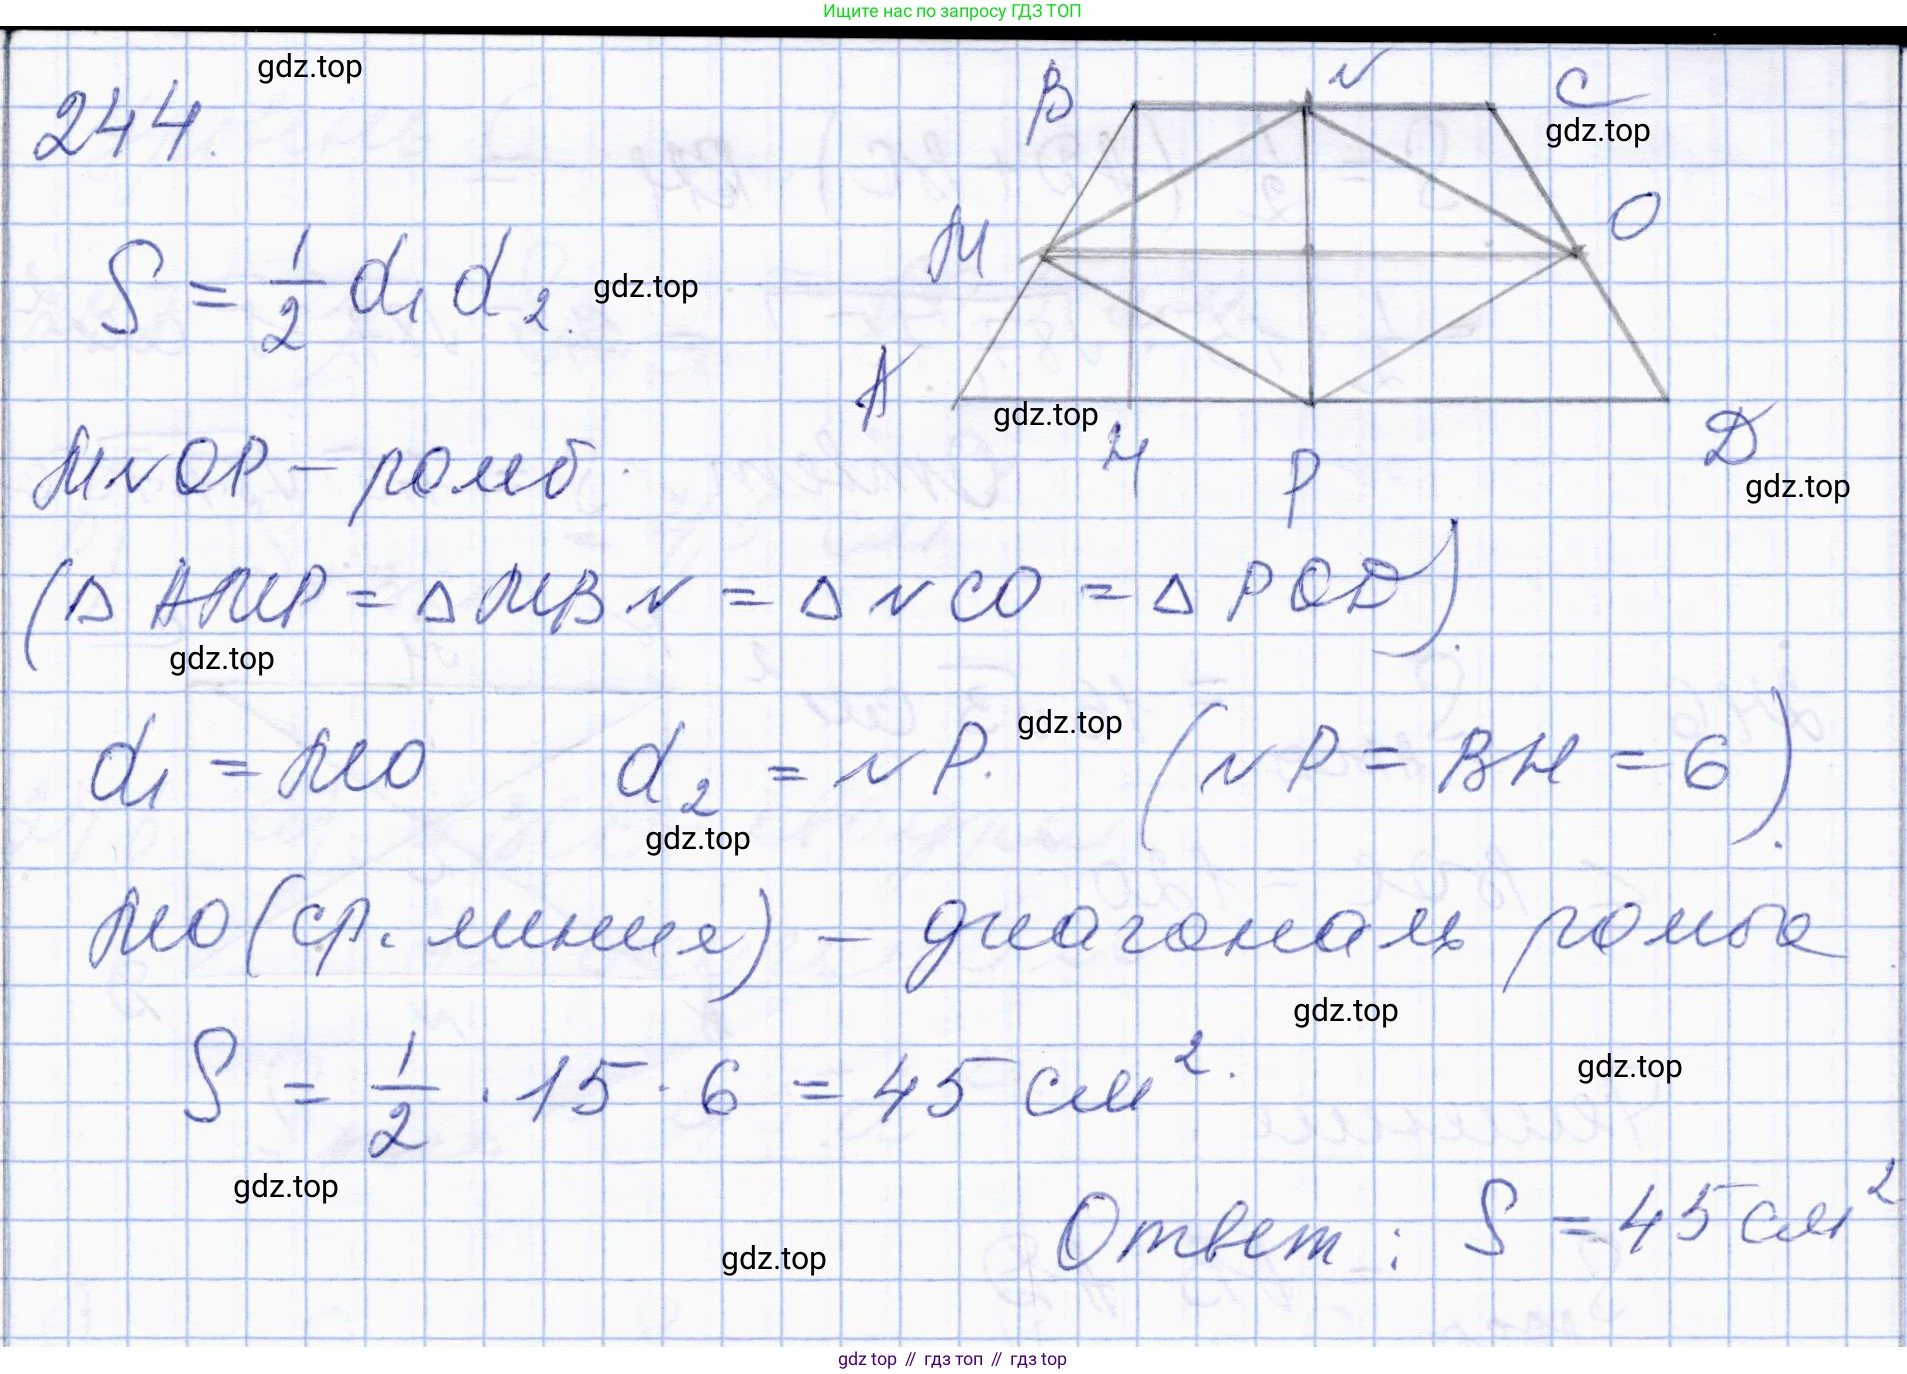 Ищите нас по запросу ГДЗ ТОП
gdz.top
244.
B N C
gdz.top
M O
S = 1/2 d₁ d₂.
gdz.top
A H P D
gdz.top
gdz.top
MNOP – ромб.
(Δ AMP = Δ MBN = Δ NCO = Δ POD).
gdz.top
gdz.top
d₁ = MO d₂ = NP. (NP = BH = 6).
gdz.top
MO (ср. линия) – диагональ ромба
gdz.top
S = 1/2 · 15 · 6 = 45 см².
gdz.top
gdz.top
Ответ: S = 45 см²
gdz.top
gdz top // гдз топ // gdz top